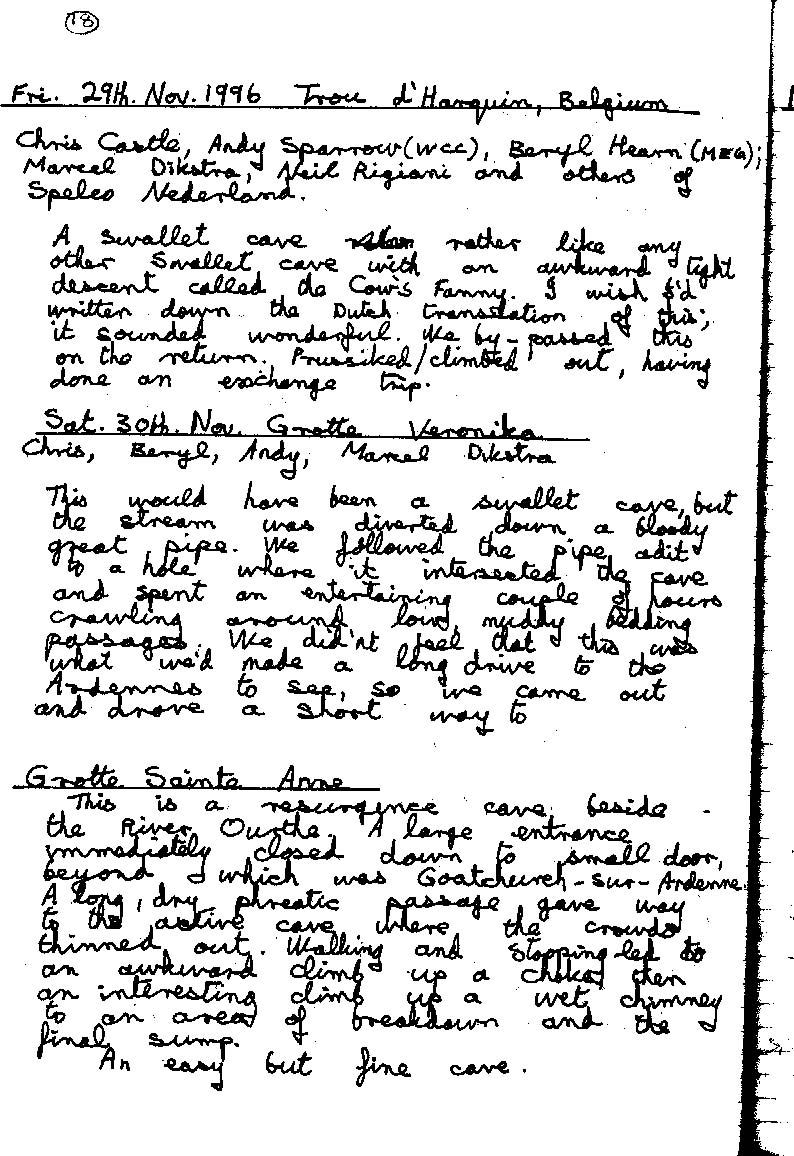 18
Fri. 29th. Nov. 1996 Trou d'Harquin, Belgium
Chris Castle, Andy Sparrow (WCC), Beryl Hearn (MEG);
Marcel Dikstra, Neil Rigiani and others of
Speleo Nederland.
A swallet cave rather like any
other Swallet cave with an awkward tight
descent called the Cow's Fanny. I wish I'd
written down the Dutch translation of this;
it sounded wonderful. We by-passed this
on the return. Prussiked/climbed out, having
done an exchange trip.
Sat. 30th. Nov. Grotte Veronika
Chris, Beryl, Andy, Marcel Dikstra
This would have been a swallet cave, but
the stream was diverted down a bloody
great pipe. We followed the pipe adit
to a hole where it intersected the cave
and spent an entertaining couple of hours
crawling around low, muddy bedding
passages. We did'nt feel that this was
what we'd made a long drive to the
Ardennes to see, so we came out
and drove a short way to
Grotte Sainte Anne
This is a resurgence cave beside
the River Ourthe. A large entrance
immediately closed down to small door,
beyond which was Goatchurch-sur-Ardenne.
A long, dry phreatic passage gave way
to the active cave where the crowds
thinned out. Walking and stopping led to
an awkward climb up a choke, then
an interesting climb up a wet chimney
to an area of breakdown and the
final sump.
An easy but fine cave.